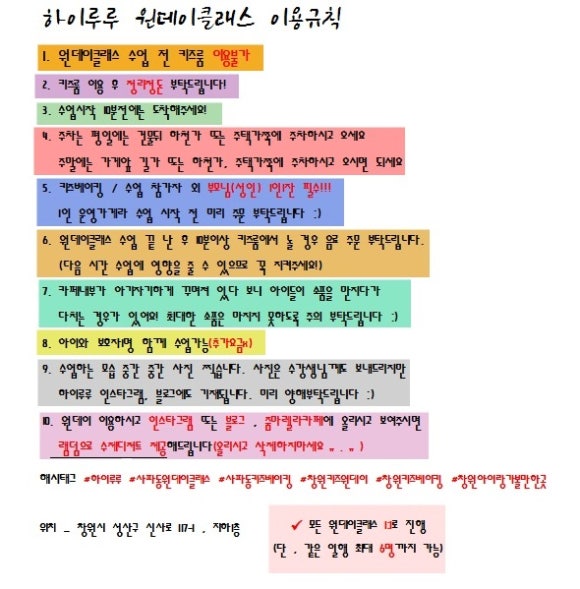 하이루루 원데이클래스 이용규칙
1. 원데이클래스 수업 전 키즈룸 이용불가
2. 키즈룸 이용 후 정리정돈 부탁드립니다!
3. 수업시작 10분전에는 도착해주세요!
4. 주차는 평일에는 건물뒤 하천가 또는 주택가쪽에 주차하시고 오세요
주말에는 가게앞 길가 또는 하천가, 주택가쪽에 주차하고 오시면 되세요
5. 키즈베이킹 / 수업 참가자 외 부모님(성인) 1인1잔 필수!!!
1인 운영가게라 수업 시작 전 미리 주문 부탁드립니다 :)
6. 원데이클래스 수업 끝 난 후 10분이상 키즈룸에서 놀 경우 음료 주문 부탁드립니다.
(다음 시간 수업에 영향을 줄 수 있으므로 꼭 지켜주세요!)
7. 카페내부가 아기자기하게 꾸며져 있다 보니 아이들이 소품을 만지다가
다치는 경우가 있어요! 최대한 소품은 만지지 못하도록 주의 부탁드립니다 :)
8. 아이와 보호자1명 함께 수업가능(추가요금x)
9. 수업하는 모습 중간 중간 사진 찍습니다. 사진은 수강생님께도 보내드리지만
하이루루 인스타그램, 블로그에도 기재됩니다. 미리 양해부탁드립니다 :)
10. 원데이 이용하시고 인스타그램 또는 블로그 , 줌마렐라카페에 올리시고 보여주시면
랜덤으로 수제디저트 제공해드립니다(올리시고 삭제하지마세요 " . " )
해시태그 #하이루루 #사파동원데이클래스 #사파동키즈베이킹 #창원키즈원데이 #창원키즈베이킹 #창원아이랑가볼만한곳
위치 - 창원시 성산구 신사로 117-1 , 지하1층
✓ 모든 원데이클래스 1:1로 진행
(단 , 같은 일행 최대 6명까지 가능)